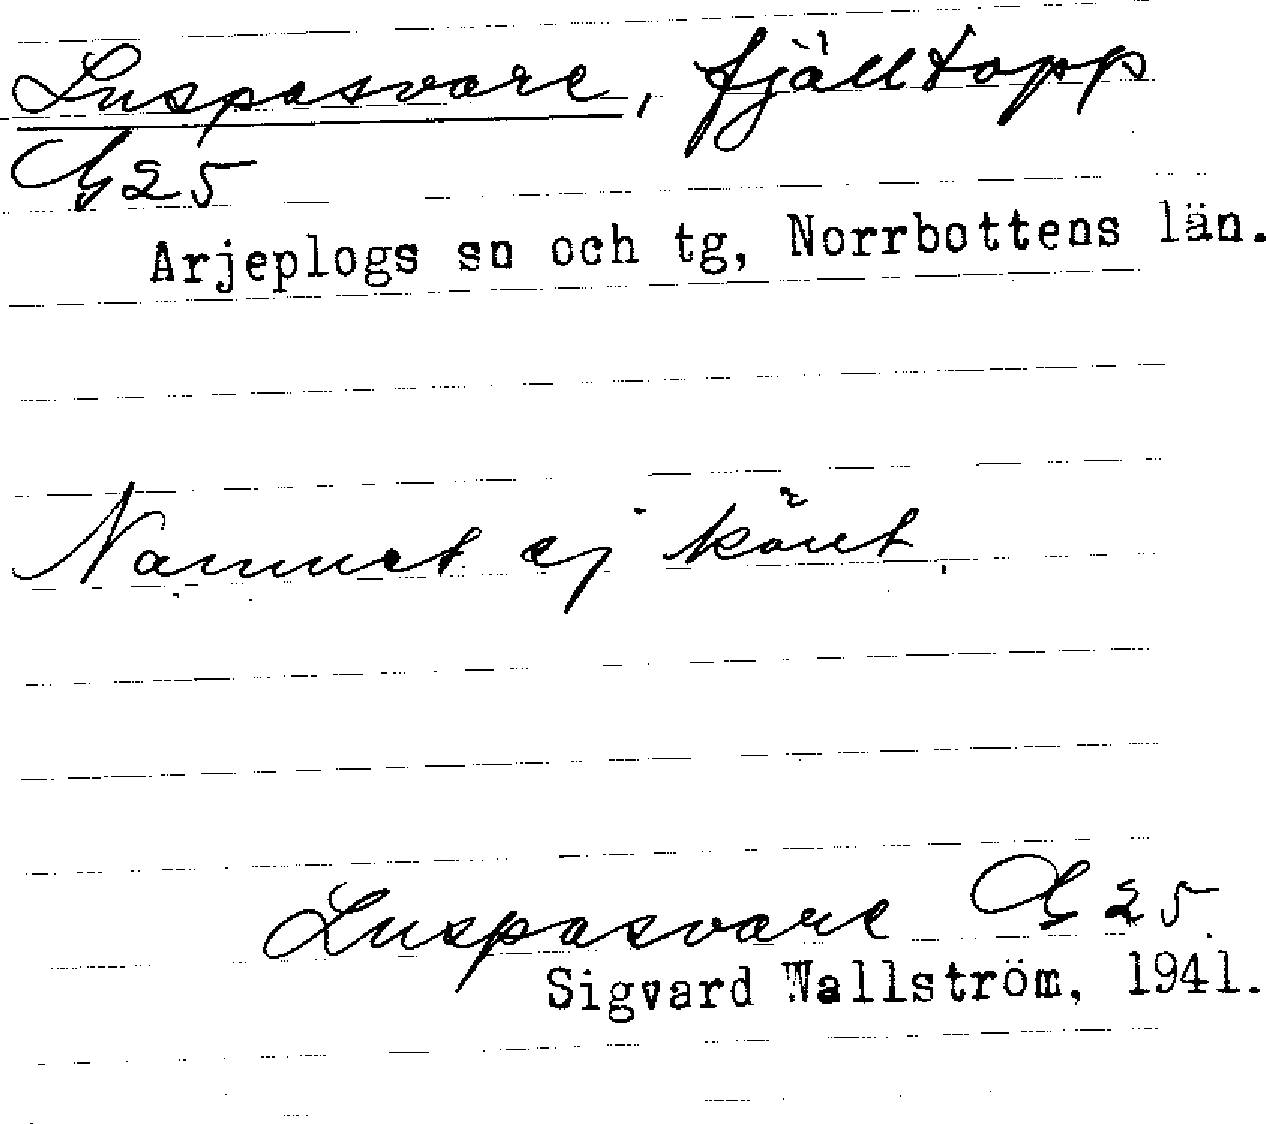 Luspasvare, fjälltopp
G 25
Arjeplogs sn och tg, Norrbottens län.
Namnet ej känt.
Luspasvare G 25.
Sigvard Wallström, 1941.